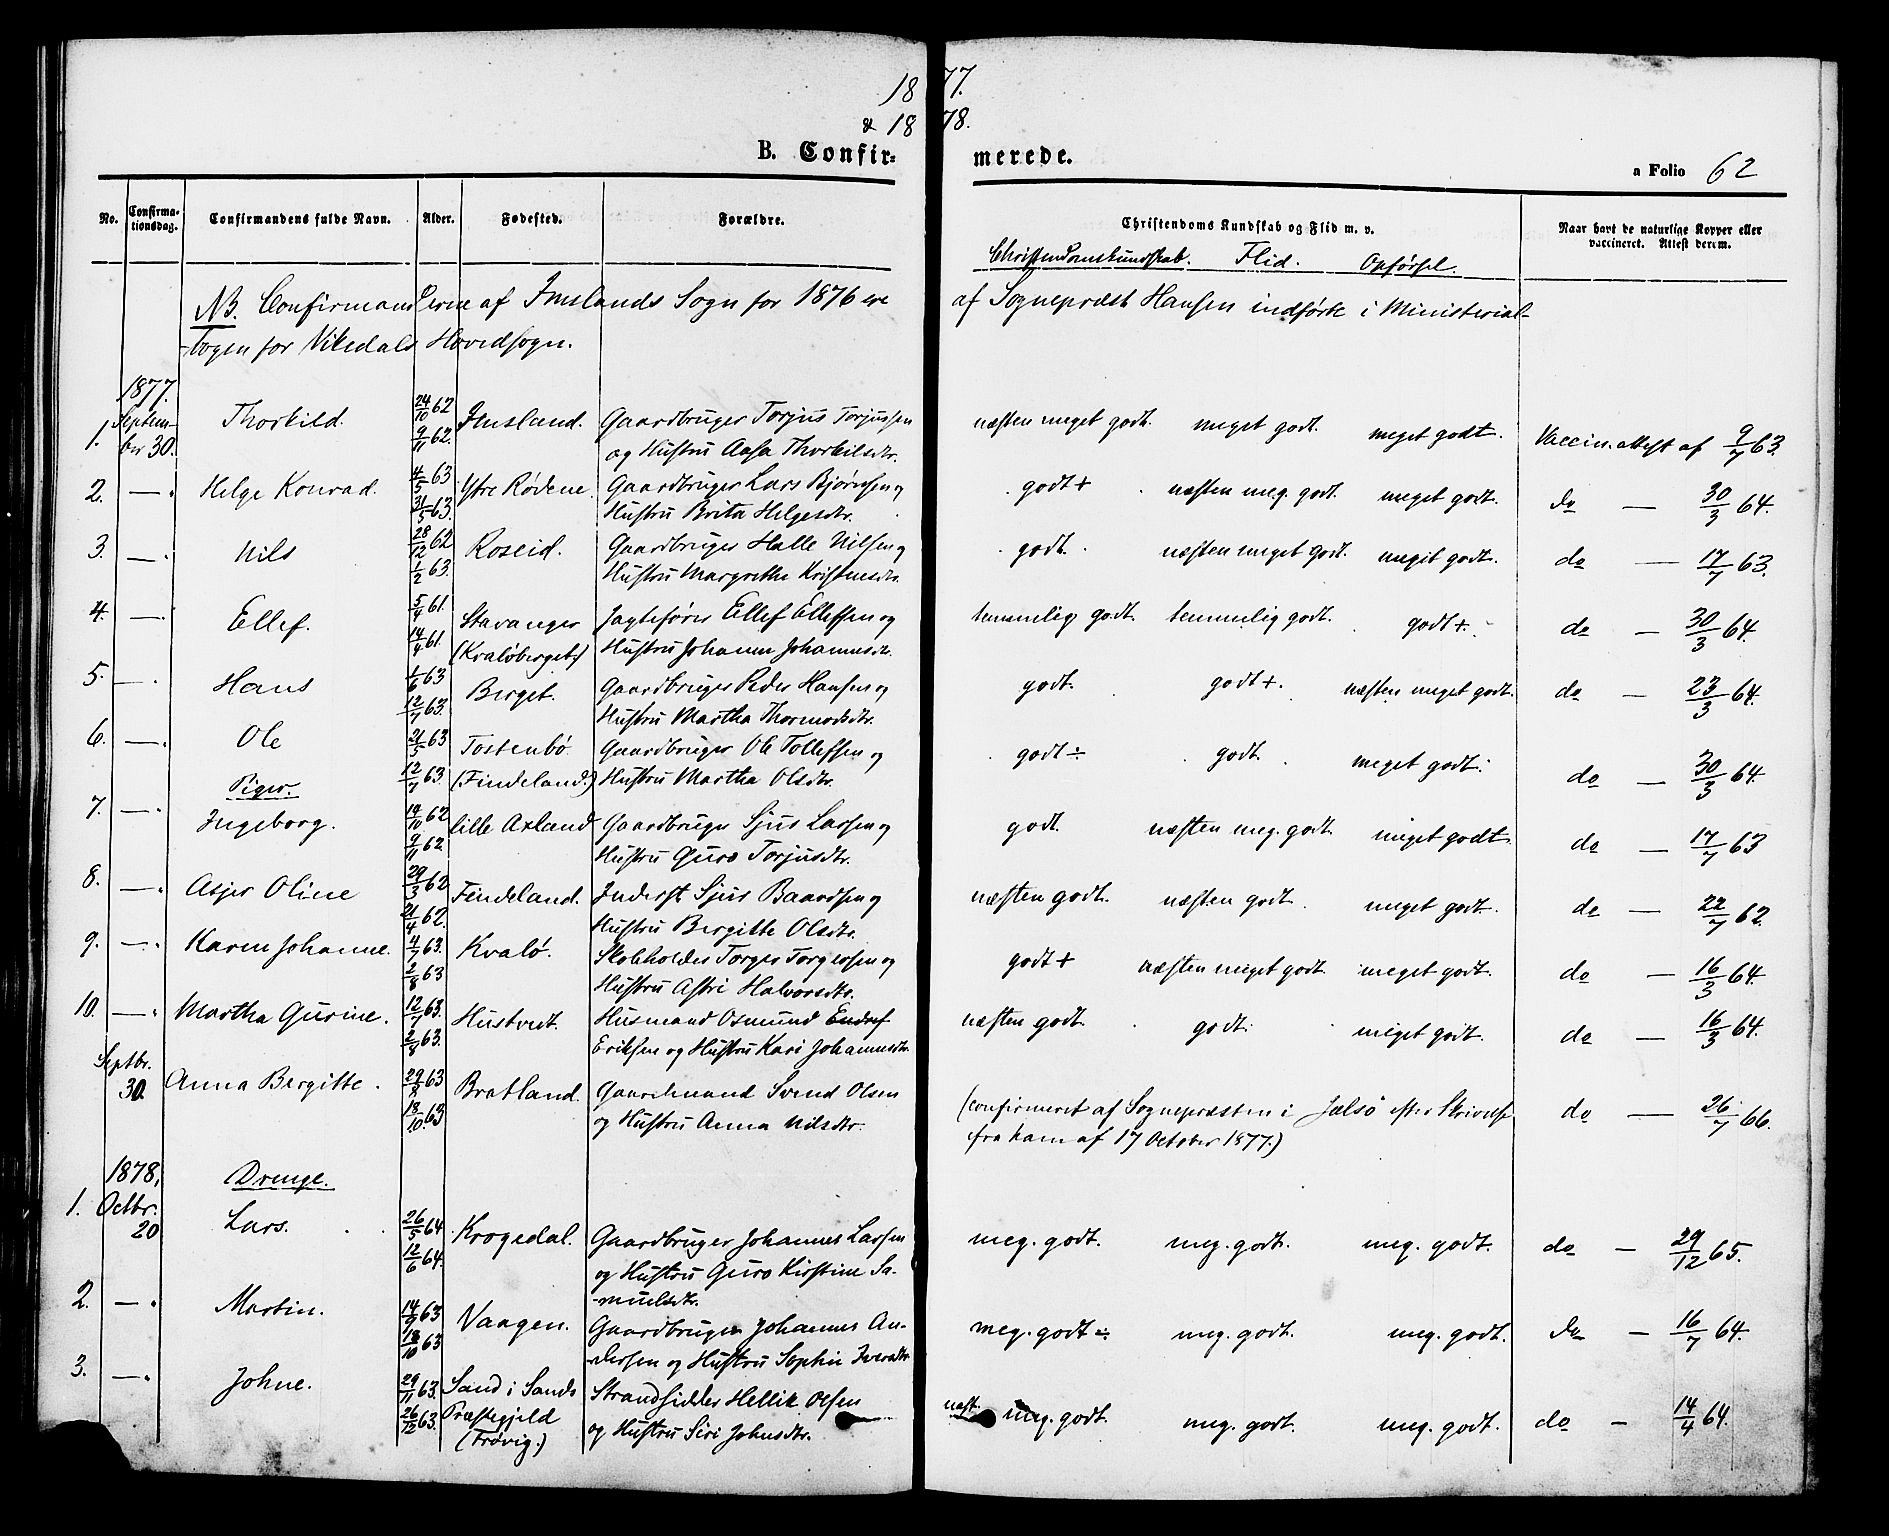 1877.
& 1878.
B. Confirmerede.
a Folio 62
No. Confirmationsdag. Confirmandens fulde Navn. Alder. Fødested. Forældre. Christendoms Kundskab og Flid m. v. Naar havt de naturlige Kopper eller vaccineret. Attest derom.
Christendomskundskab. Flid. Opførsel.
NB. Confirmanderne af Imslands Sogn for 1876 ere af Sognepræst Hansen indførte i Ministerial-
-bogen for Vikedals Hovedsogn.
1877.
1. September 30. Thorkild. 24/10 62 9/11 62. Imsland. Gaardbruger Torjus Torjussen og Hustru Aasa Thorkilsdtr. næsten meget godt. meget godt. meget godt. Vaccin. attest af 9/7 63.
2. — . Helge Konrad. 4/5 63 31/5 63. Ytre Rødene. Gaardbruger Lars Bjørnsen og Hustru Brita Helgesdtr. godt + næsten meg. godt. meget godt. do — 30/3 64.
3. — . Nils 28/12 62 1/2 63. Roseid. Gaardbruger Halle Nilsen og Hustru Margrethe Kristensdtr. godt. næsten meget godt. meget godt. do — 17/7 63.
4. — . Ellef. 5/4 61. 14/4 61. Stavanger (Kvaløberget) Jagtefører Ellef Ellefsen og Hustru Johanne Johannesdtr. temmelig godt. temmelig godt. godt +. do — 30/3 64.
5. — . Hans 1/6 63 12/7 63. Berget. Gaardbruger Peder Hansen og Hustru Martha Thormodsdtr. godt. godt +. næsten meget godt. do — 23/3 64.
6. — . Ole 21/5 63 12/7 63. Tostenbø (Findeland.) Gaardbruger Ole Tollefsen og Hustru Martha Olsdtr. godt ÷ godt. meget godt. do — 30/3 64.
Piger.
7. — . Ingeborg. 14/10 62 9/11 62. lille Axland Gaardbruger Sjus Larsen og Hustru Guro Torjusdtr. godt. næsten meg. godt. meget godt. do — 17/7 63
8. — . Asjer Oline 29/3 62 21/4 62. Findeland. Inderst Sjur Baardsen og Hustru Bergitte Olsdtr. næsten godt. næsten godt. meget godt. do — 22/7 62.
9. — . Karen Johanne. 4/7 63. 2/8 63 Kvalø. Skoleholder Torger Torgersen og Hustru Astri Halvorsdtr. godt + næsten meget godt. meget godt. do — 16/3 64.
10. — . Martha Gurine. 12/7 63. 2/8 63. Hustvedt. Husmand Osmund Endref Eriksen og Hustru Kari Johannesdtr. næsten godt. godt. meget godt. do — 16/3 64.
Septbr. 30. Anna Bergitte. 29/8 63 18/10 63 Bratland. Gaardmand Svend Olsen og Hustru Anna Nilsdtr. (confirmeret af Sognepræsten i Jælsø efter Skrivelse fra ham af 17 October 1877.) do — 26/7 66.
1878, Drenge.
1. Octbr. 20 Lars. 26/5 64 12/6 64. Krogedal. Gaardbruger Johannes Larsen og Hustru Guro Kirstine Sa-muelsdtr. meg. godt. meg. godt. meg. godt. do — 29/12 65.
2. — . Martin. 14/9 63 18/10 63 Vaagen. Gaardbruger Johannes An-dersen og Hustru Sophie Iversdtr meg. godt ÷ meg. godt. meg. godt. do — 16/7 64.
3. — . Johne. 29/11 63. 26/12 63. Sand i Sands Præstegjeld (Trøvig.) Strandsidder Hellik Olsen og Hustru Siri Johnsdtr. næst. meg. godt. meg. godt. meg. godt. do — 14/4 64.